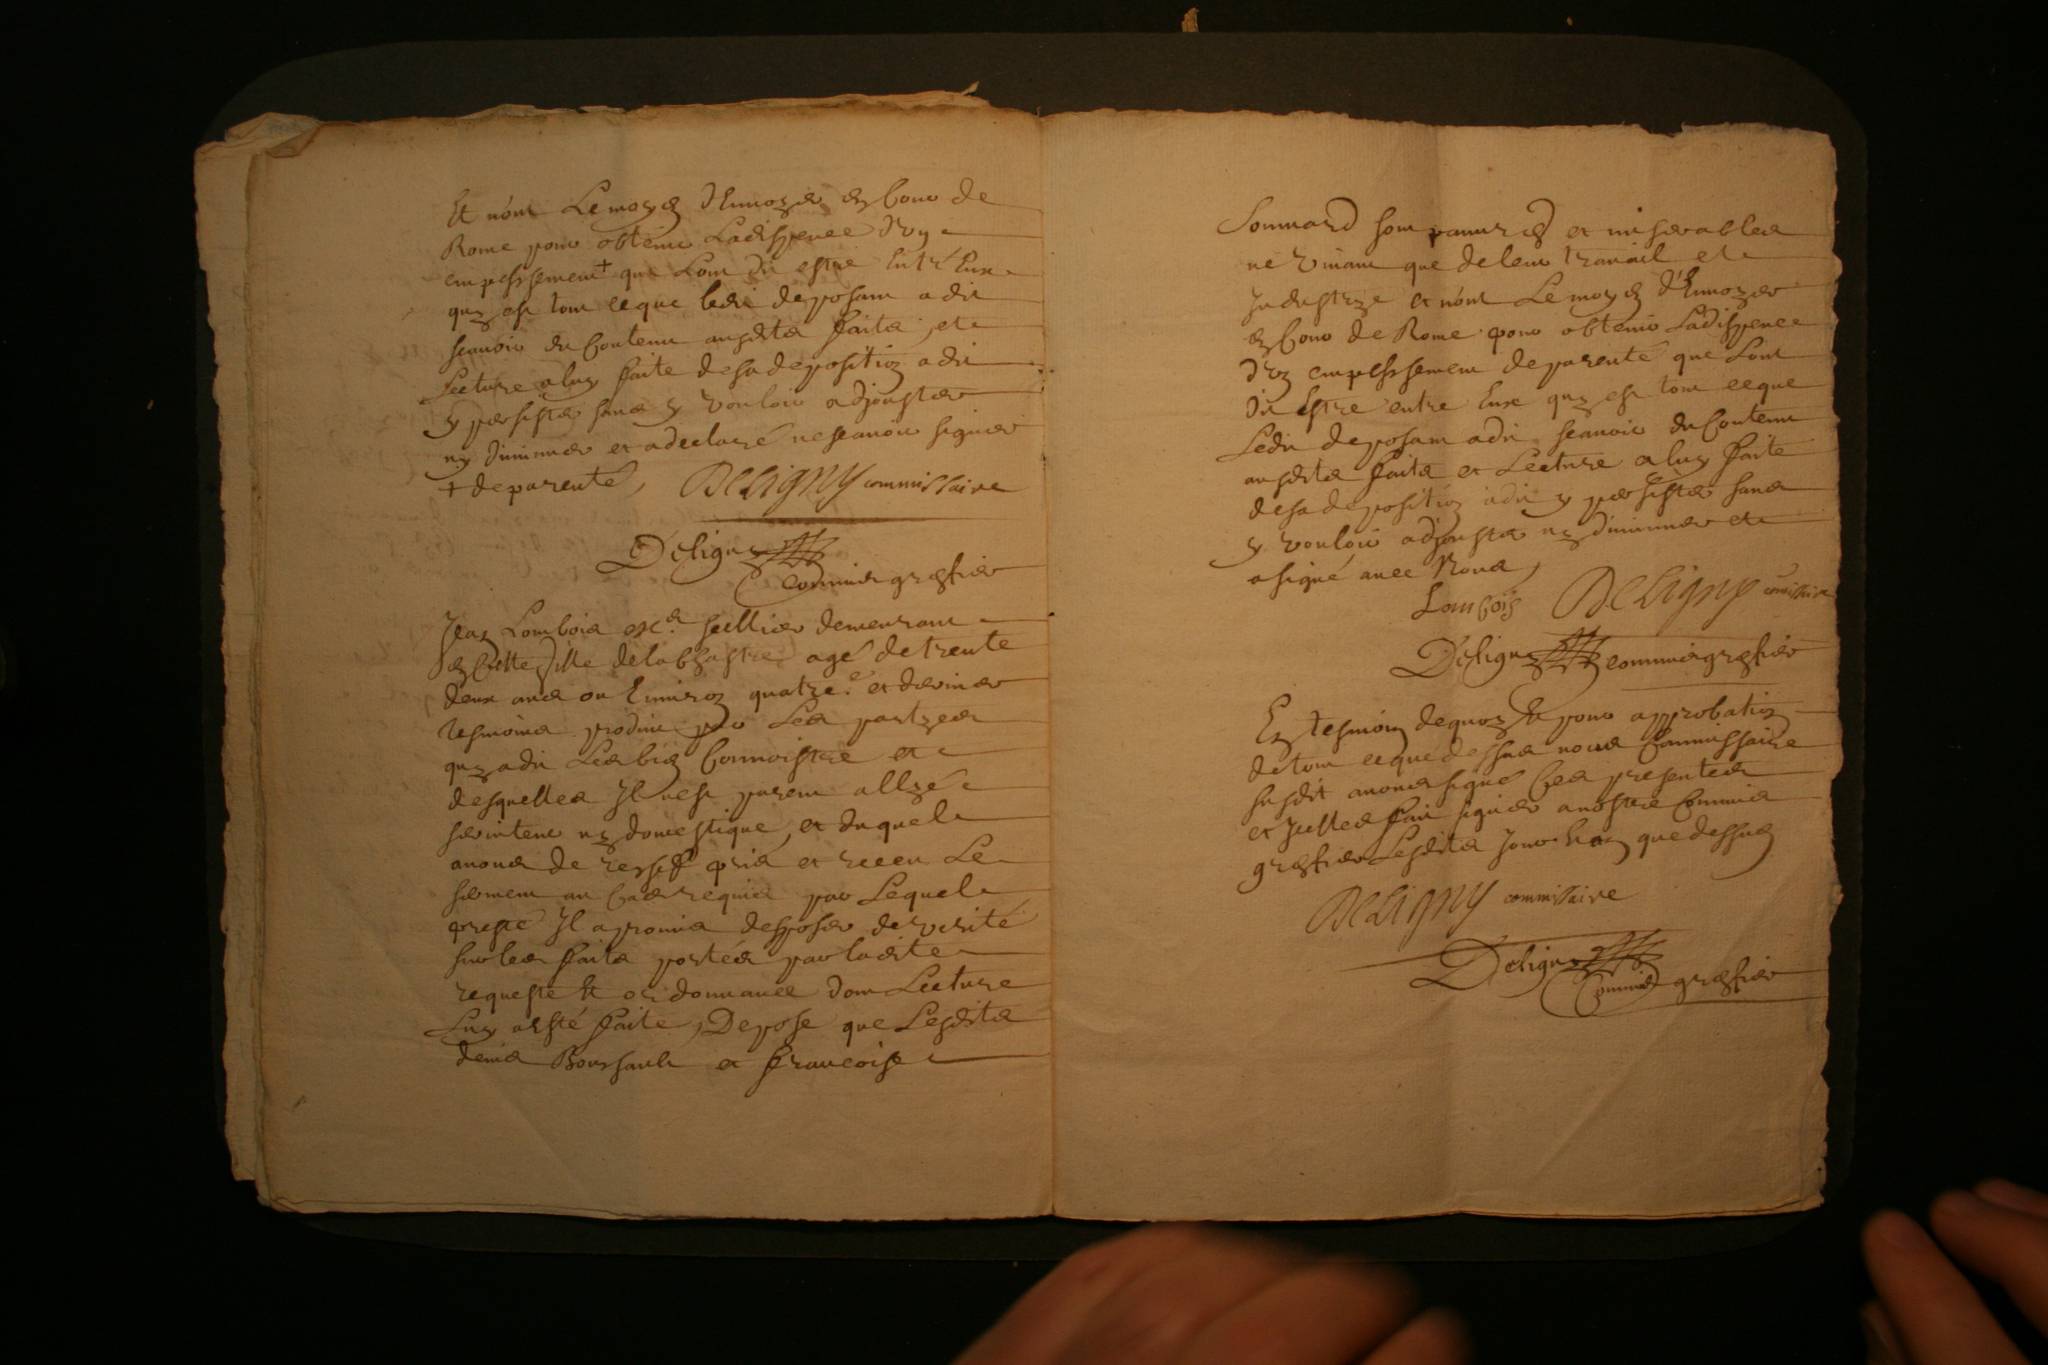 Et n'ont Le moyen d'Enuoyer en Cour de
Rome pour obtenir La dispence d'vn
empeschement + que Lont dit estre Entr'Eux
quy est tout ce que ledit deposant a dit
scauoir du Contenu ausdits faits, et
Lecture a luy faite de sa deposition a dit
y persister sans y vouloir adjouster
ny diminuer et a declaré ne scauoir signer
+ de parenté, Deligny commissaire
Deligny
commis greffier
Jean Lombois me. sellier demeurant
en Cette Ville de la Chastre agé de trente
deux ans ou Enuiron quatre.e et dernier
tesmoins produit par Les partyes
quy a dit Les bien Connoistre et
desquelles Il n'est parent allyé
seruiteur ny domestique, et duquel
auons de prié et receu Le
serment au Cas requis par Lequel
presté Il a promis desposer de verité
sur les faits portés par ladite
requeste Et ordonnance dont Lecture
Luy a esté faite, Depose que Lesdits
denis Boursault et francoise
Sommard sont pauures et miserables
ne viuant que de leur trauail et
Industrye et n'ont Le moyen d'Enuoyer
en Cour de Rome pour obtenir La dispence
d'vn empeschement de parenté que Lont
dit Estre entre Eux quy est tout ce que
Ledit deposant a dit scauoir du Contenu
ausdits faits et Lecture a luy faite
de sa deposition a dit y persister sans
y vouloir adjouster ny diminuer et
a signé auec Nous,
Lombois Deligny commissaire
Deligny commis greffier
En tesmoin de quoy Et pour approbation
de tout ce que dessus nous Commissaire
susdit auons signé Ces presentes
et Icelles fait signer a nostre Commis
greffier Lesdits jour Et an que dessus
Deligny commissaire
Deligny
Commis greffier